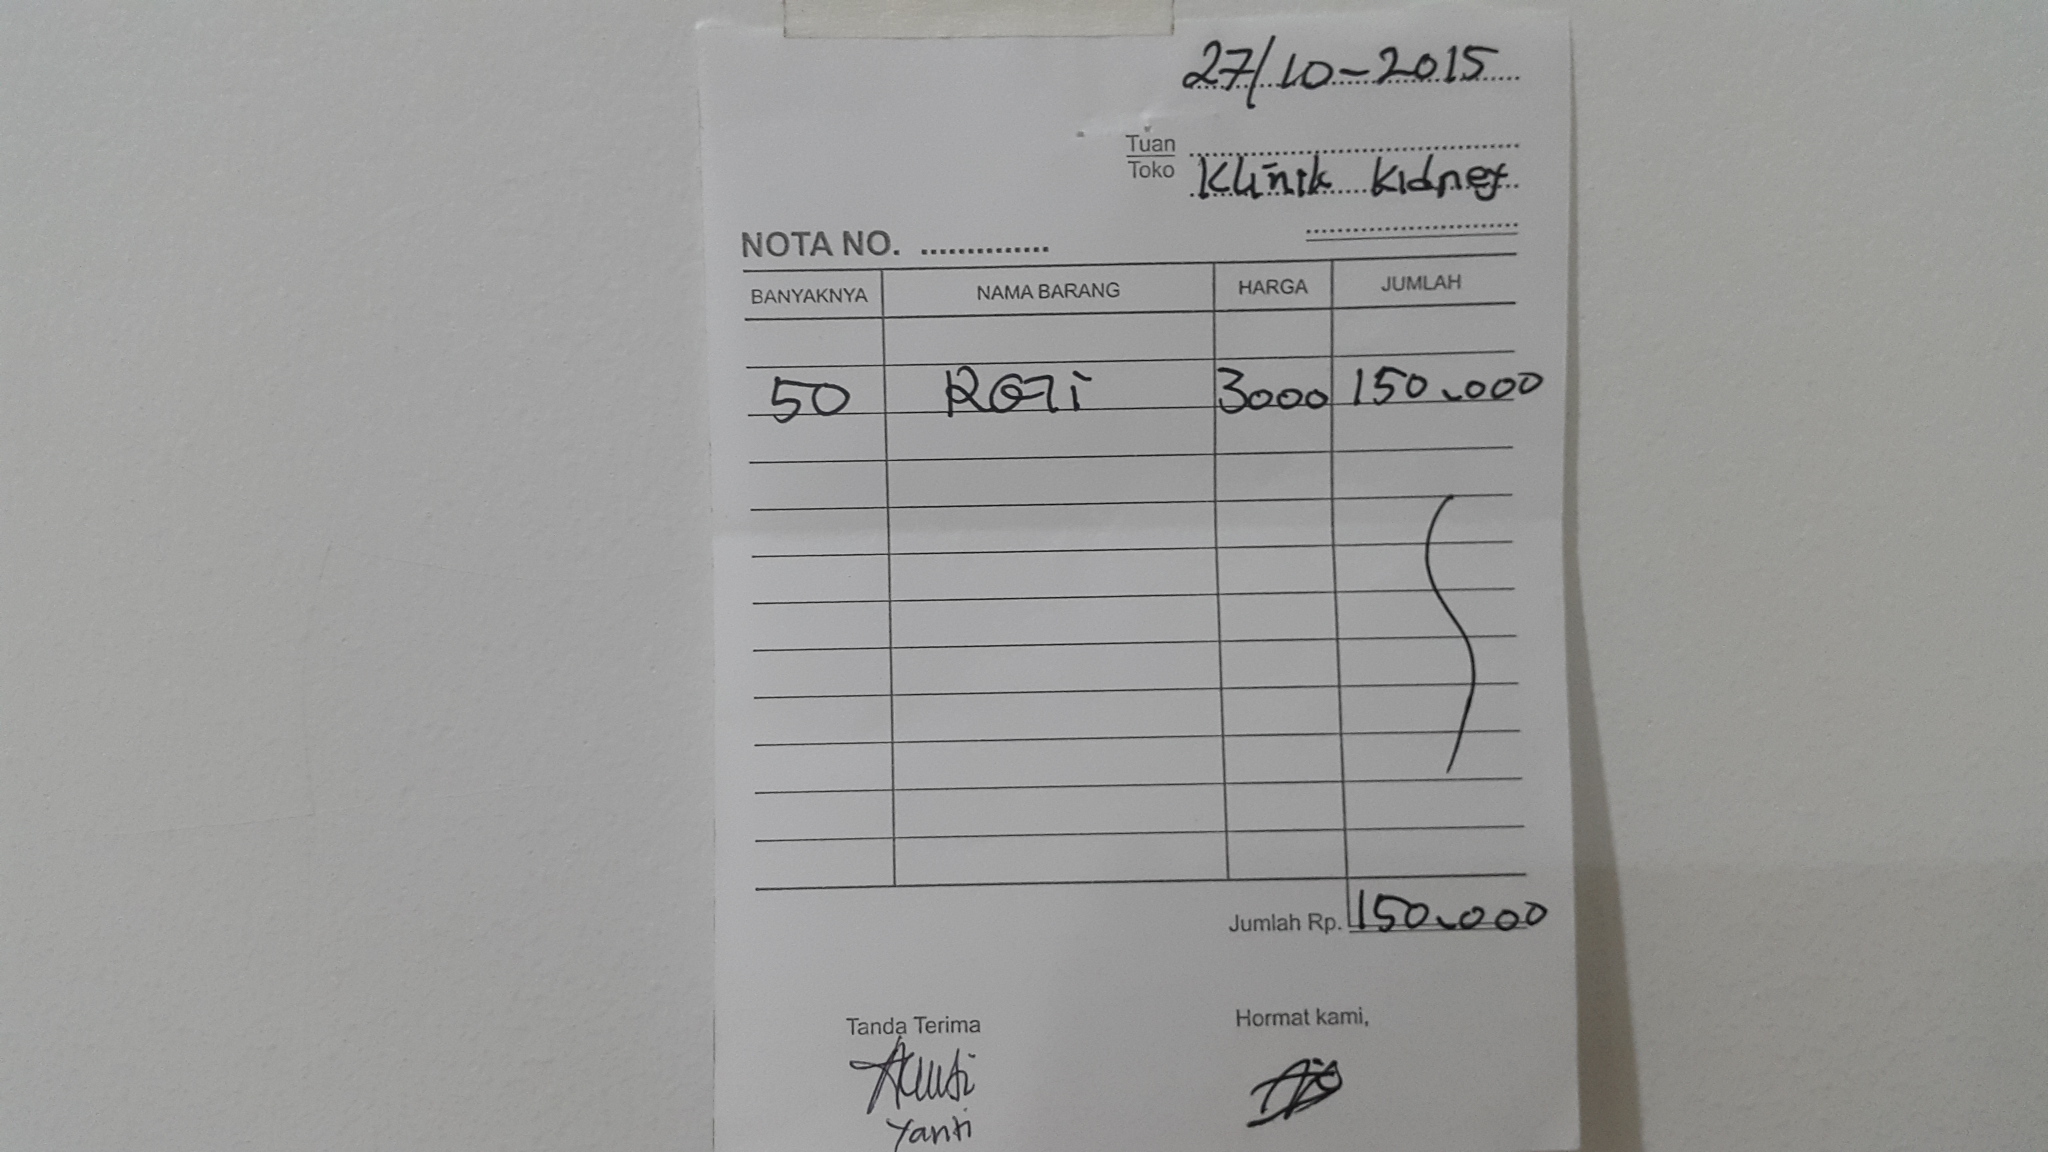 27/10-2015
Tuan
Toko Klinik Kidney
NOTA NO. ..............
BANYAKNYA NAMA BARANG HARGA JUMLAH
50 Roti 3000 150.000
Jumlah Rp. 150.000
Tanda Terima Hormat kami,
Yanti